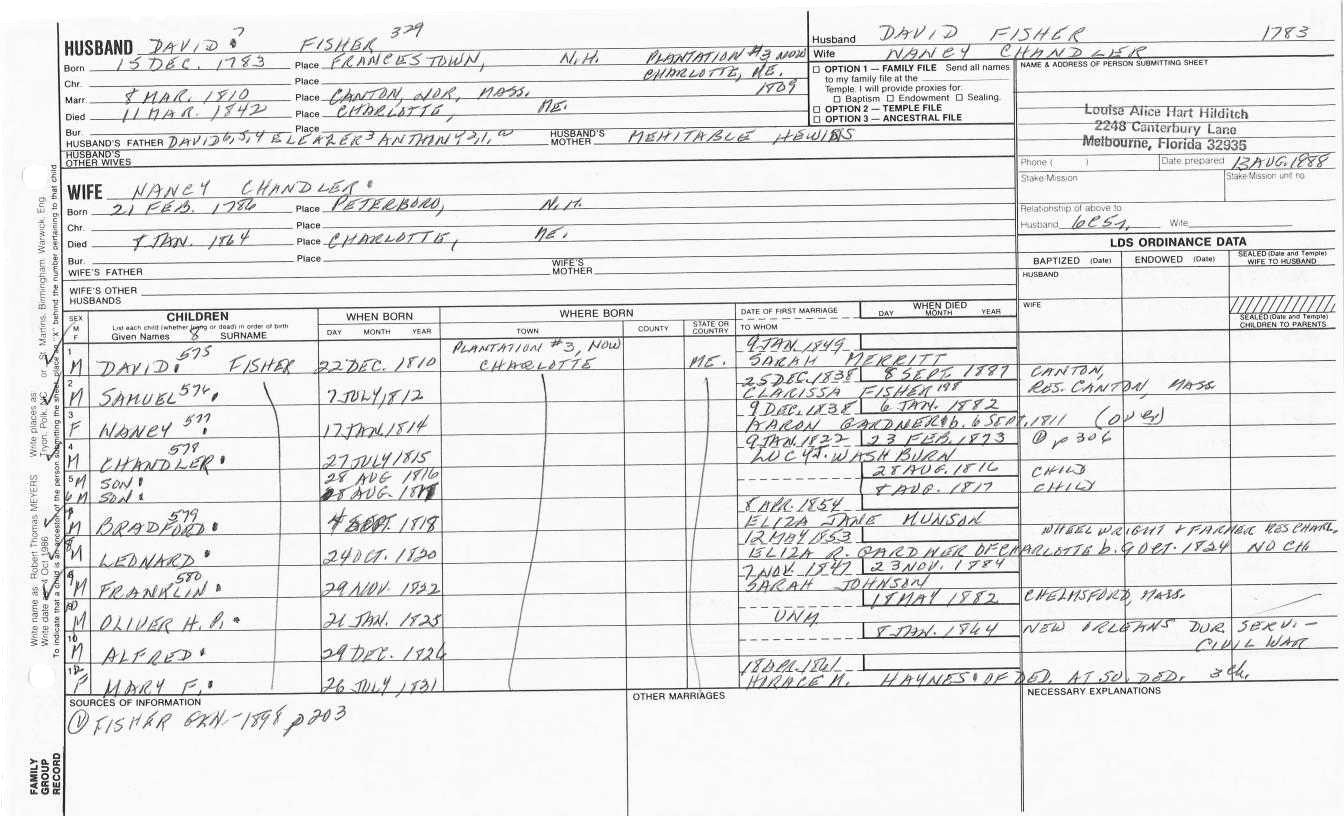 HUSBAND DAVID 7 FISHER 329
Born 15 DEC. 1783 Place FRANCESTOWN, N.H. PLANTATION #3 NOW
Chr. Place CHARLOTTE, ME.
Marr. 8 MAR. 1810 Place CANTON, NOR, MASS. 1809
Died 11 MAR. 1842 Place CHARLOTTE, ME.
Bur. Place
HUSBAND'S FATHER DAVID 6,5,4 ELEAZER 3 ANTHONY 2,1, HUSBAND'S MOTHER MEHITABLE HEWINS
HUSBAND'S OTHER WIVES
WIFE NANCY CHANDLER
Born 21 FEB. 1786 Place PETERBORO, N.H.
Chr. Place
Died 8 JAN. 1864 Place CHARLOTTE, ME.
Bur. Place
WIFE'S FATHER WIFE'S MOTHER
WIFE'S OTHER HUSBANDS
Husband DAVID FISHER 1783
Wife NANCY CHANDLER
OPTION 1 — FAMILY FILE Send all names
to my family file at the
Temple. I will provide proxies for:
Baptism Endowment Sealing.
OPTION 2 — TEMPLE FILE
OPTION 3 — ANCESTRAL FILE
NAME & ADDRESS OF PERSON SUBMITTING SHEET
Louise Alice Hart Hilditch
2248 Canterbury Lane
Melbourne, Florida 32935
Phone ( ) Date prepared 13 AUG. 1988
Stake/Mission Stake/Mission unit no.
Relationship of above to
Husband 6C5r, Wife
LDS ORDINANCE DATA
BAPTIZED (Date) ENDOWED (Date) SEALED (Date and Temple) WIFE TO HUSBAND
HUSBAND
WIFE
SEALED (Date and Temple) CHILDREN TO PARENTS
SEX M F
CHILDREN
List each child (whether living or dead) in order of birth
Given Names SURNAME
WHEN BORN
DAY MONTH YEAR
WHERE BORN
TOWN COUNTY STATE OR COUNTRY
DATE OF FIRST MARRIAGE
TO WHOM
WHEN DIED
DAY MONTH YEAR
1 M DAVID 575 FISHER 22 DEC. 1810 PLANTATION #3, NOW CHARLOTTE ME. 9 JAN 1849
SARAH MERRITT
2 M SAMUEL 576 7 JULY 1812 25 DEC. 1838 8 SEPT. 1887 CANTON,
CLARISSA FISHER 198 RES. CANTON MASS
3 F NANCY 577 17 JAN. 1814 9 DEC. 1838 6 JAN. 1882
AARON GARDNER b. 6 SEPT. 1811 (over)
4 M CHANDLER 578 27 JULY 1815 9 JAN. 1822 23 FEB. 1873 ① p 306
LUCY J. WASHBURN
5 M SON 28 AUG 1816 28 AUG. 1816 CHILD
6 M SON 8 AUG. 1817 8 AUG. 1817 CHILD
M BRADFORD 579 4 SEPT. 1818 8 APR. 1854
ELIZA JANE MUNSON WHEELWRIGHT & FARMER RES CHARL.
8 M LEONARD 24 OCT. 1820 12 MAY 1853
ELIZA R. GARDNER OF CHARLOTTE b. 9 OCT. 1824 NO CH.
9 M FRANKLIN 580 29 NOV. 1822 7 NOV. 1847 23 NOV. 1884
SARAH JOHNSON
10 M OLIVER H. P. 21 JAN. 1825 18 MAY 1882 CHELMSFORD, MASS.
UNM
M ALFRED 29 DEC. 1826 8 JAN. 1864 NEW ORLEANS DUR. SERV. - CIVIL WAR
12 F MARY F. 26 JULY 1831 18 APR. 1861
HORACE M. HAYNES OF DED. AT SO. DED. 3 ch.
SOURCES OF INFORMATION
① FISHER GEN. - 1898 p 203
OTHER MARRIAGES
NECESSARY EXPLANATIONS
FAMILY GROUP RECORD
Write name as Robert Thomas MEYERS Write places as Tryon, Polk, NC or St. Martins, Birmingham, Warwick, Eng.
Write date as 4 Oct 1986
To indicate that a child is an ancestor of the person submitting the sheet, place an "X" behind the number pertaining to that child